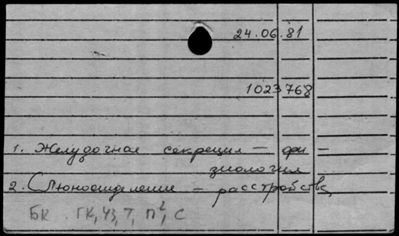 24.06.81
1023768
1. Желудочная секреция — фи-
зиология
2. Слюноотделение — расстройства
БК ГК, ЧЗ, Т, П², С